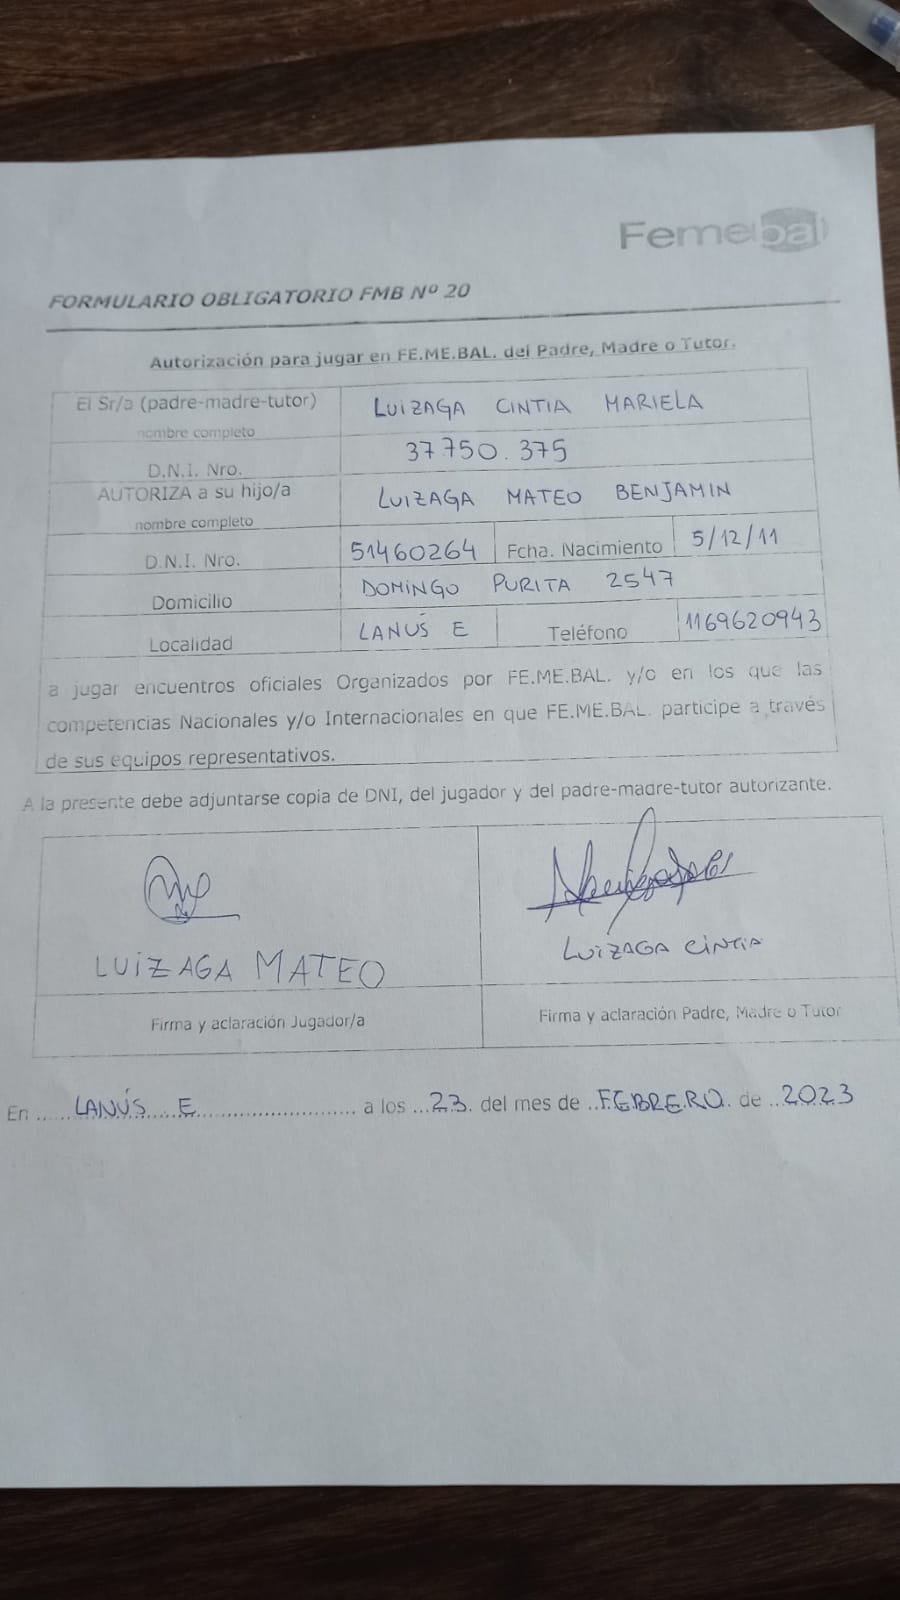 Femebal
FORMULARIO OBLIGATORIO FMB Nº 20
Autorización para jugar en FE.ME.BAL. del Padre, Madre o Tutor.
El Sr/a (padre-madre-tutor) nombre completo LUIZAGA CINTIA MARIELA
D.N.I. Nro. 37750.375
AUTORIZA a su hijo/a nombre completo LUIZAGA MATEO BENJAMIN
D.N.I. Nro. 51460264 Fcha. Nacimiento 5/12/11
Domicilio DOMINGO PURITA 2547
Localidad LANÚS E Teléfono 1169620943
a jugar encuentros oficiales Organizados por FE.ME.BAL. y/o en los que las
competencias Nacionales y/o Internacionales en que FE.ME.BAL. participe a través
de sus equipos representativos.
A la presente debe adjuntarse copia de DNI, del jugador y del padre-madre-tutor autorizante.
LUIZAGA MATEO LUIZAGA CINTIA
Firma y aclaración Jugador/a Firma y aclaración Padre, Madre o Tutor
En ......LANÚS E............................ a los ...23. del mes de ..FEBRERO. de ..2023